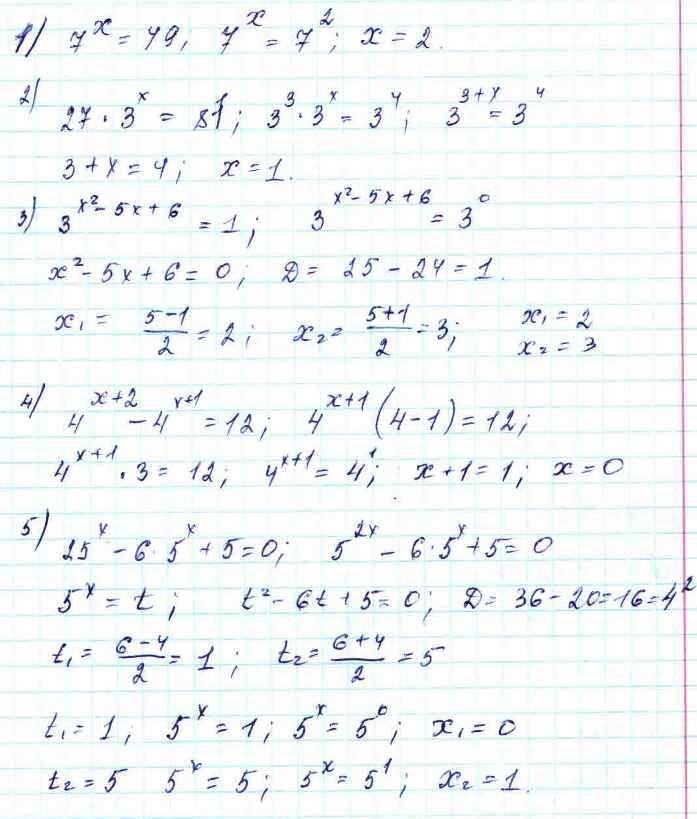 1) 7^x = 49; 7^x = 7^2; x = 2.
2) 27 · 3^x = 81; 3^3 · 3^x = 3^4; 3^(3+x) = 3^4
3 + x = 4; x = 1.
3) 3^(x²-5x+6) = 1; 3^(x²-5x+6) = 3^0
x² - 5x + 6 = 0; D = 25 - 24 = 1.
x₁ = (5-1)/2 = 2; x₂ = (5+1)/2 = 3; x₁ = 2
x₂ = 3
4) 4^(x+2) - 4^(x+1) = 12; 4^(x+1) (4-1) = 12;
4^(x+1) · 3 = 12; 4^(x+1) = 4^1; x + 1 = 1; x = 0
5) 25^x - 6 · 5^x + 5 = 0; 5^(2x) - 6 · 5^x + 5 = 0
5^x = t; t² - 6t + 5 = 0; D = 36 - 20 = 16 = 4^2
t₁ = (6-4)/2 = 1; t₂ = (6+4)/2 = 5
t₁ = 1; 5^x = 1; 5^x = 5^0; x₁ = 0
t₂ = 5 5^x = 5; 5^x = 5^1; x₂ = 1.